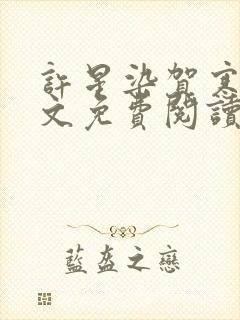 許星染賀寒
文免費閱讀
藍盔之戀